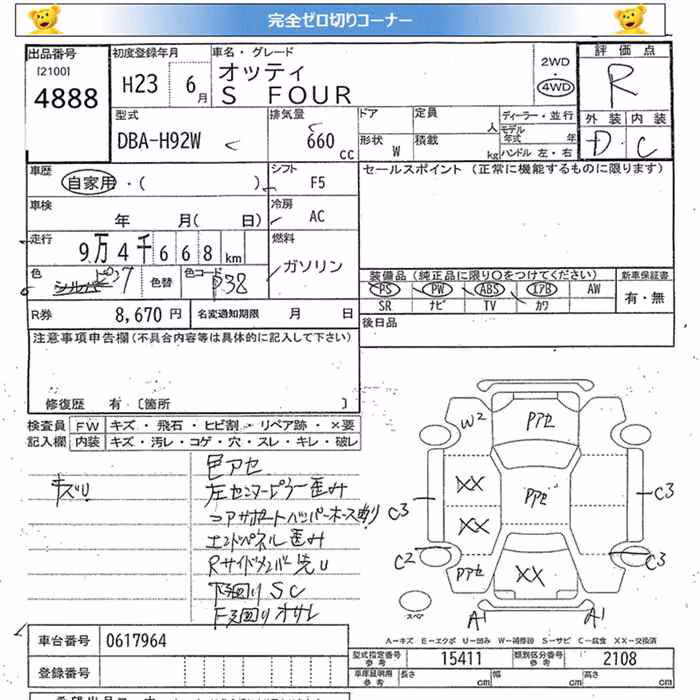 完全ゼロ切りコーナー
出品番号
[2100]
4888
初度登録年月
H23 6月
車名・グレード
オッティ
S FOUR
2WD
4WD
評価点
R
外装 内装
D・C
型式
DBA-H92W
排気量
660 cc
ドア
定員 人
形状 W
積載 kg
ディーラー・並行
モデル年式 年
ハンドル 左・右
車歴
自家用・( )
シフト
F5
セールスポイント (正常に機能するものに限ります)
車検
年 月( 日)
冷房
AC
走行
9万4千668km
燃料
ガソリン
色
シルバー ピンク
色替
色コード
P38
装備品 (純正品に限り〇をつけてください)
PS PW ABS エアB AW
SR ナビ TV カワ
新車保証書
有・無
R券 8,670円
名変通知期限 月 日
後日品
注意事項申告欄(不具合内容等は具体的に記入して下さい)
修復歴 有 〔箇所 〕
検査員 FW キズ・飛石・ヒビ割・リペア跡・×要
記入欄 内装 キズ・汚レ・コゲ・穴・スレ・キレ・破レ
キズU
色アセ
左センターピラー歪み
コアサポート バンパーホース
エンドパネル歪み
Rサイドメンバー先U
下廻りSC
F下廻りオサレ
W2
Pアセ
XX
PアセE
XX
C3
C3
C2
C3
Pアセ
XX
スペア
A1
A1
A-キズ E-エクボ U-凹み W-補修跡 S-サビ C-腐食 XX-交換済
車台番号 0617964
型式指定番号 参考 15411
類別区分番号 参考 2108
登録番号
車庫証明用 参考 長さ cm 幅 cm 高さ cm
希望出品コーナー